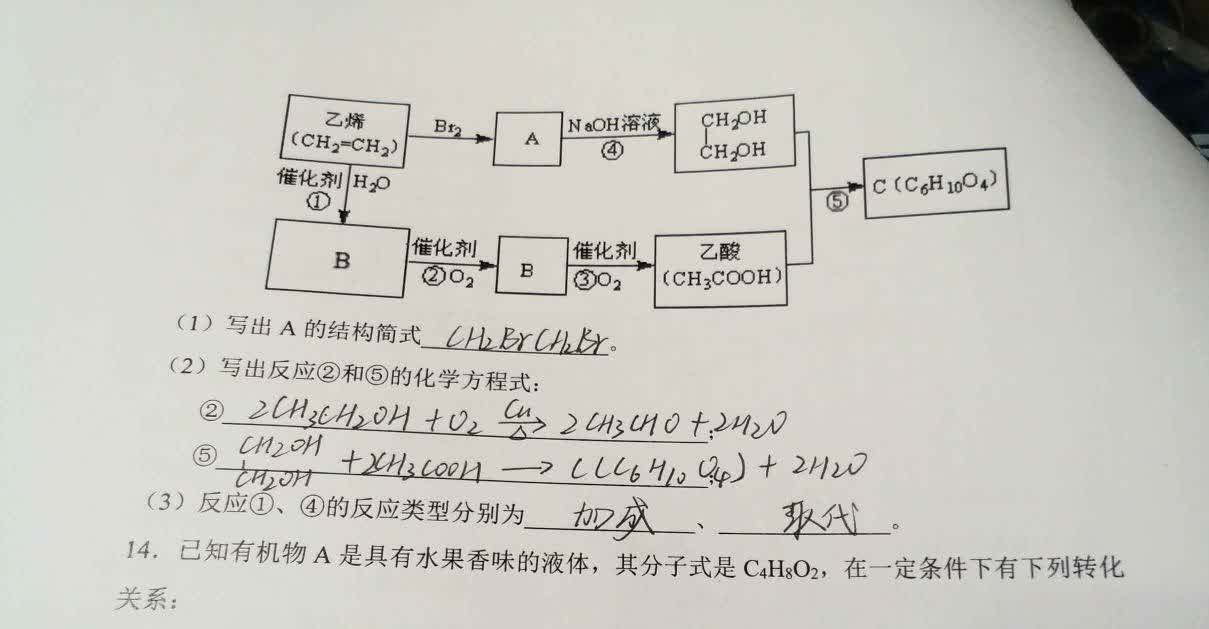 乙烯
(CH₂=CH₂)
Br₂
A
NaOH溶液
④
CH₂OH
CH₂OH
催化剂
①
H₂O
⑤
C(C₆H₁₀O₄)
B
催化剂
②O₂
B
催化剂
③O₂
乙酸
(CH₃COOH)
(1)写出 A 的结构简式 CH₂BrCH₂Br。
(2)写出反应②和⑤的化学方程式：
② 2CH₃CH₂OH + O₂ Cu △ → 2CH₃CHO + 2H₂O ;
⑤ CH₂OH CH₂OH + 2CH₃COOH → C(C₆H₁₀O₄) + 2H₂O ;
(3)反应①、④的反应类型分别为 加成 、 取代 。
14．已知有机物 A 是具有水果香味的液体，其分子式是 C₄H₈O₂，在一定条件下有下列转化
关系：